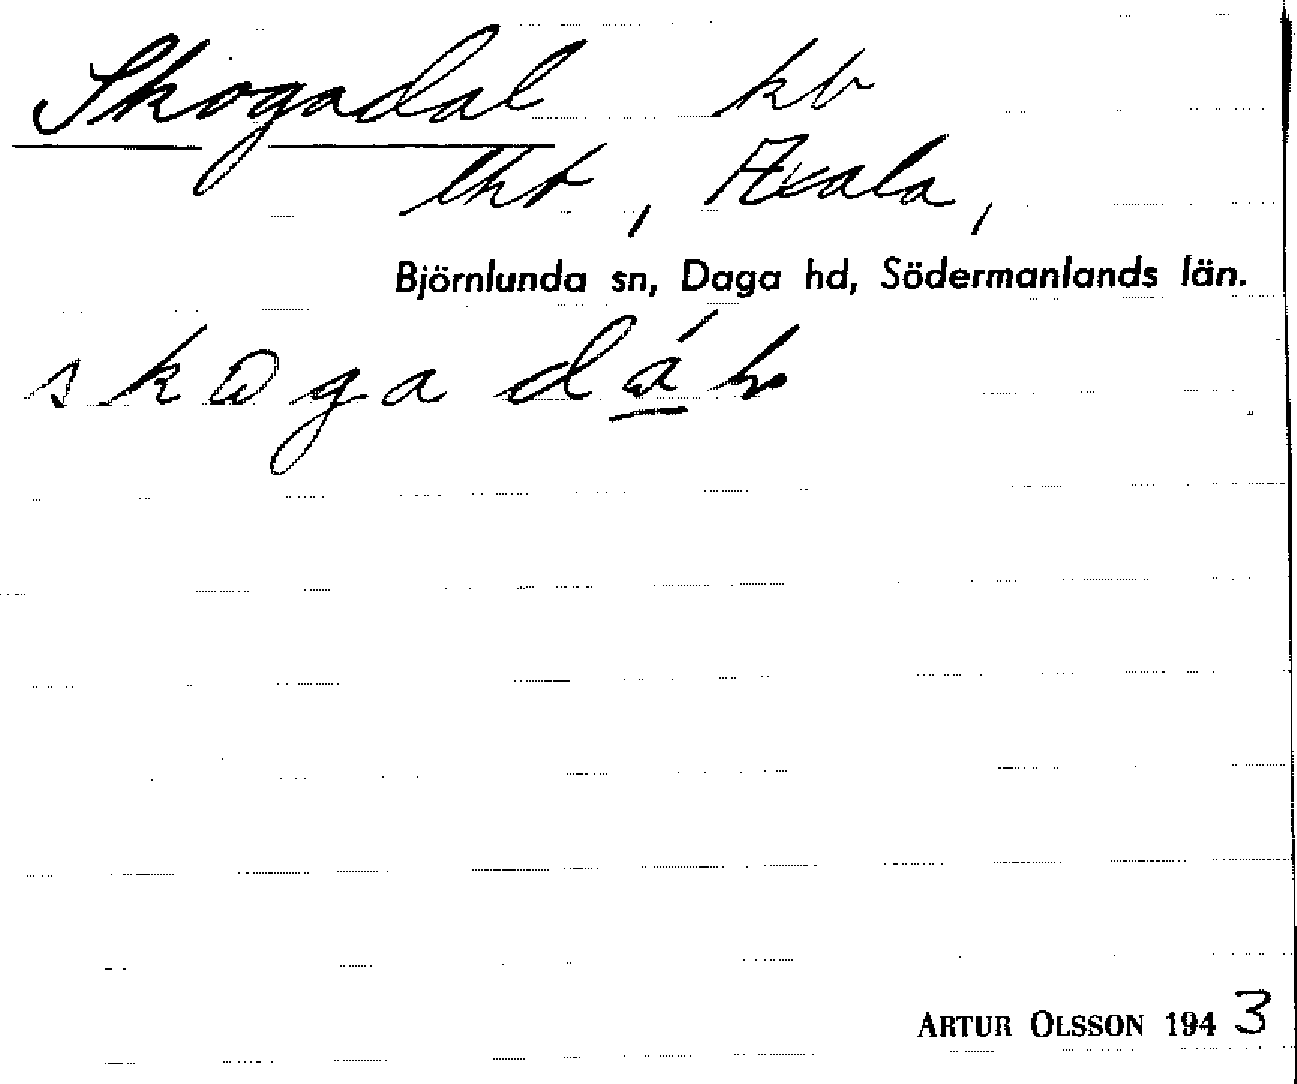 Skogadal kb
lht, Axala,
Björnlunda sn, Daga hd, Södermanlands län.
skɷga dá
ARTUR OLSSON 1943